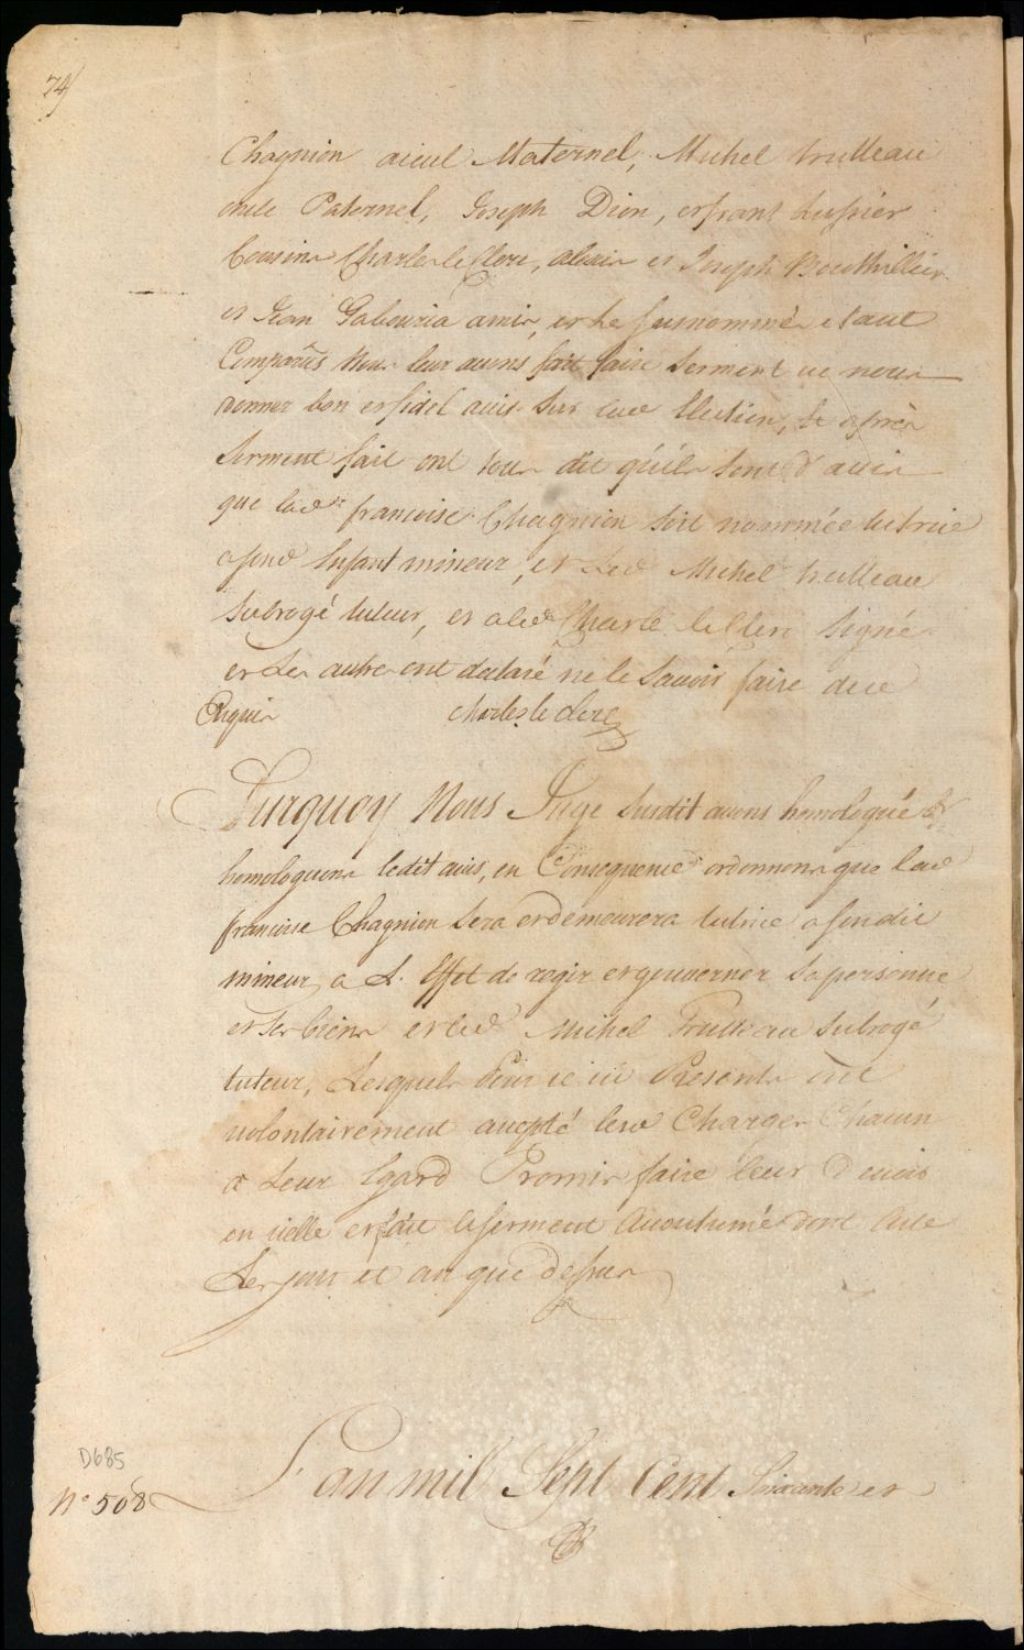 74
Chagnion aieul Maternel, Michel trulleau
oncle Paternel, Joseph Dion, et frans Lussier
Cousins Charle le Clerc, alexis et Joseph Bouthillier
et Jean Gabouria amis, et le susnommés etant
Comparûs Nous leur avons fait faire serment de nous
donner bon et fidel avis sur lad Election, Et après
serment fait ont tous dit qu'ils sont d'avis
que lade francoise Chagnion soit nommée tutrice
a sond Enfant mineur, et Led Michel trulleau
subrogé tuteur, et a led Charle leClerc Signé
et Les autre ont declaré ne le savoir faire de ce
Enquis charles le clerc
Surquoy Nous Juge susdit avons homologué &
homologuons ledit avis, en Consequence ordonnons que lad
francoise Chagnion sera et demeurera tutrice a son dit
mineur, a L'Effet de regir et gouverner sa personne
et ses biens et led Michel Trulleau subrogé
tuteur, Lesquels Pour ce ici Presents ont
volontairement accepté lesd Charges Chacun
a Leur Egard Promis faire leur Devoir
en icelle et fait le serment Accoutumé dont Acte
Les jour et an que dessus
D685
N° 508
L'an mil Sept Cent Soixante et